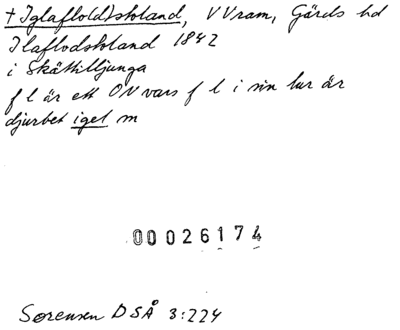 + Iglaflo(d)stoland, V Vram, Gärds hd
Ilaflodstoland 1842
i Skättilljunga
f l är ett ON vars f l i sin tur är
djurbet igel m
00026174
Sørensen DSÅ 3:224